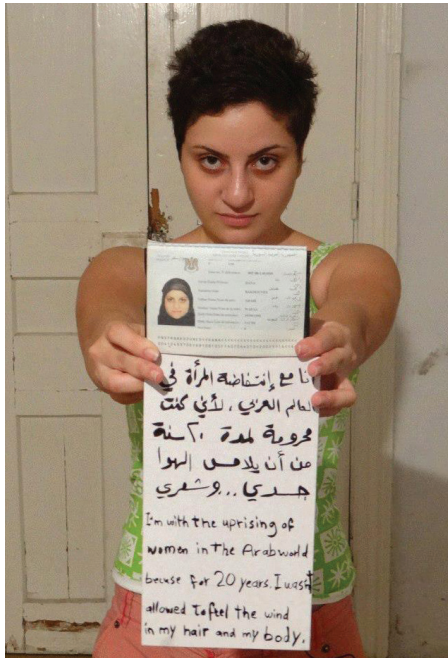 أنا مع إنتفاضة المرأة في
العالم العربي ، لأني كنت
محرومة لمدة ٢٠ سنة
من أن يلامس الهوا
جسدي .. وشعري
I'm with the uprising of
women in The Arab world
becuse for 20 years. I wasn't
allowed To feel the wind
in my hair and my body.